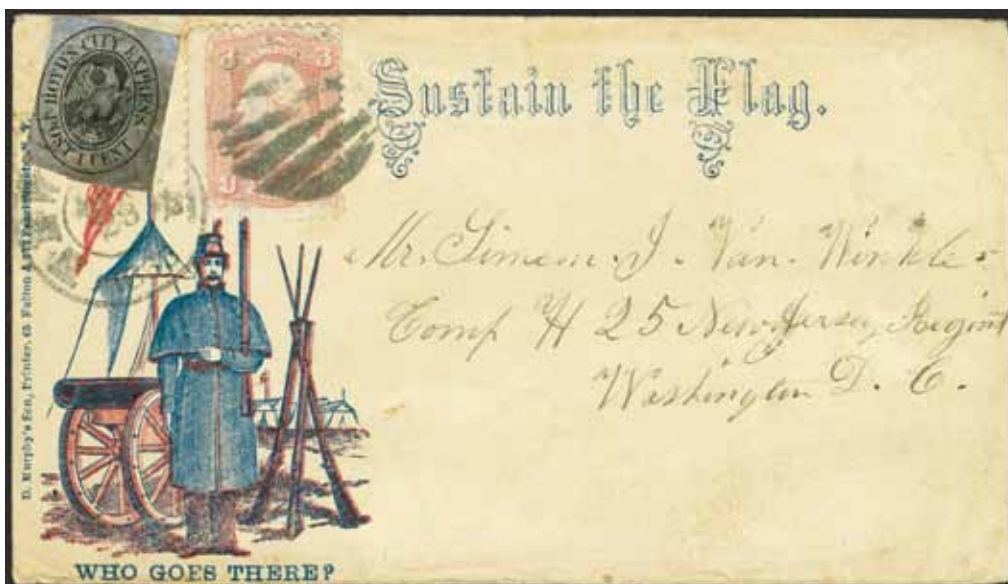 BOYD'S CITY EXPRESS
POST 1 CENT
3 3
Sustain the Flag.
Mr. Simeon. J. Van. Winkle.
Comp H 25 New Jersey Regiment
Washington D. C.
D. Murphy's Son, Printer, 65 Fulton & Pearl Streets, N.Y.
WHO GOES THERE?